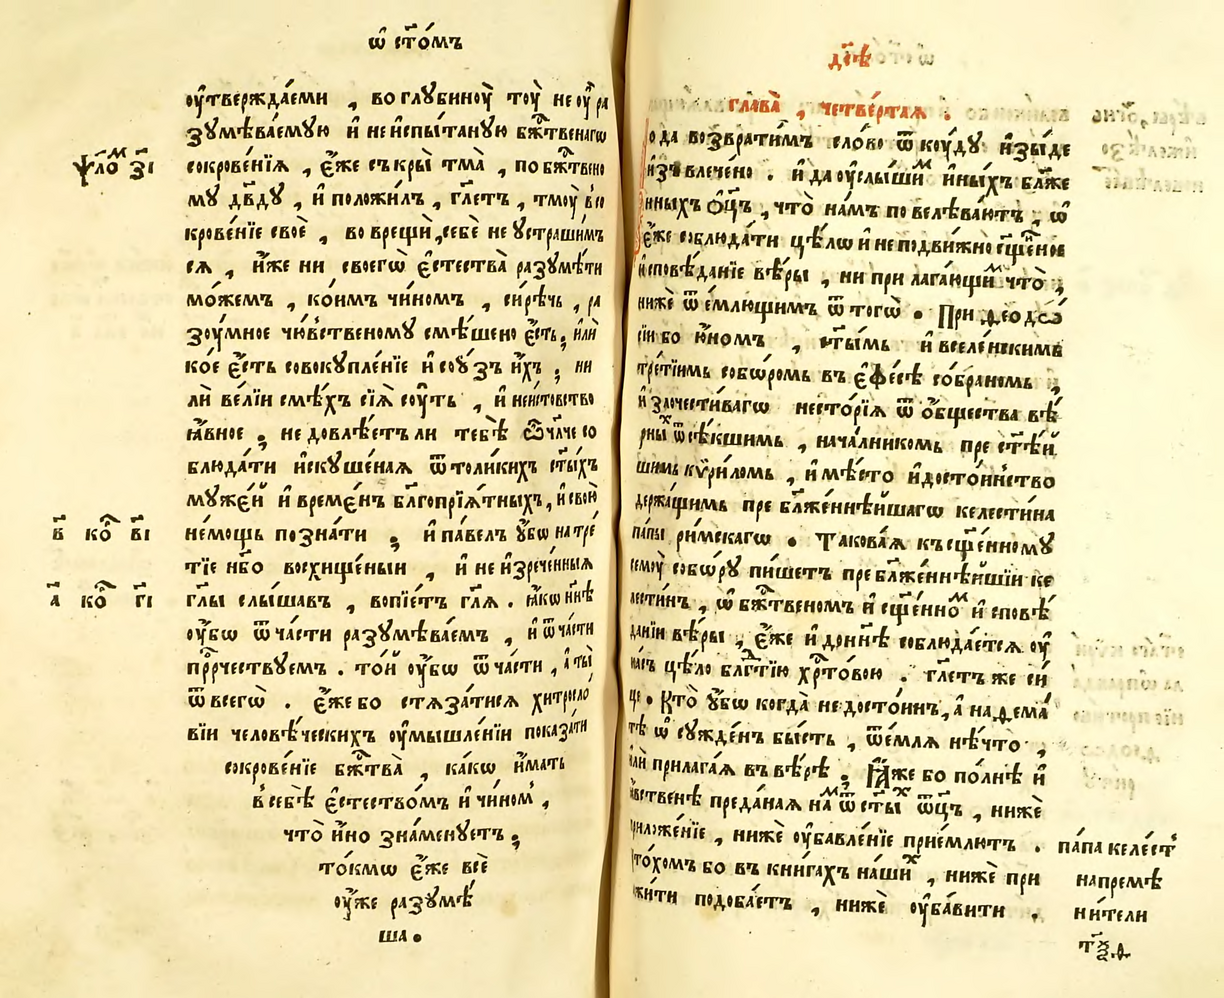 ѡ҆ ст҃о́мъ
ᲂу҆тверждає́ми , во глꙋбинᲂу̀ тᲂу̀ не ᲂу҆ ра
зꙋмѣ́ваємꙋю и҆ не и҆спы́танꙋю бж҃твенагѡ
ѱло́м з҃і сокрове́нїѧ , є҆́же съкры̀ тма̀ , по бж҃твено
мꙋ дв҃дꙋ , и҆ положи́лъ , гл҃етъ , тмᲂу̀ въ со
крове́нїе своѐ , во вреши́ , себѐ не ꙋстраши́мъ
сѧ , и҆́же ни своегѡ̀ є҆стества̀ разꙋмѣ́ти
мо́жемъ , ко́имъ чи́номъ , си́рѣчь , ра
зᲂу́мное чю́вственомꙋ смѣ́шено є҆́сть ; и҆лѝ
ко́е є҆́сть совокꙋпле́нїе и҆ сᲂу́зъ и҆́хъ ; ни
лѝ ве́лїи смѣ́хъ сїѧ̀ сᲂу́ть , и҆ неи́стовство
ꙗ҆́вное ; не довлѣ́етъ ли тебѣ̀ ѽ чл҃че со
блюда́ти и҆скꙋше́наѧ ѿ толи́кихъ ст҃ы́хъ
мꙋже́й и҆ време́нъ бл҃гопрїѧ́тныхъ , и҆ свою̀
в҃ ко҃ в҃і не́мощь позна́ти ; и҆ па́велъ ᲂу҆́бѡ на тре́
тїе нб҃о восхище́ныи , и҆ не и҆зрече́нныѧ
а҃ ко҃ г҃і гл҃ы слы́шавъ , вопїе́тъ гл҃ѧ . ꙗ҆́кѡ нн҃ѣ
ᲂу҆́бѡ ѿ ча́сти разꙋмѣ́ваемъ , и҆ ѿ ча́сти
прⷪ҇рчествꙋемъ . то́й ᲂу҆́бѡ ѿ ча́сти , а҆ ты̀
ѿ всегѡ̀ . є҆́же бо стѧза́тисѧ хитросло́
вїи человѣ́ческихъ ᲂу҆мышле́нїи показа́ти
сокрове́нїе бж҃тва̀ , ка́кѡ и҆́мать
в себѣ̀ є҆стество́мъ и҆ чи́ном ,
что̀ и҆́но зна́менꙋетъ ;
то́кмѡ є҆́же всѐ
ᲂу҆́же разꙋмѣ́
ша .
дв҃ѣ
глава̀ , четве́ртаѧ .
о да возврати́мъ сло́во ѿ кᲂу́дꙋ и҆зы́де
и҆звлече́но . и҆ да ᲂу҆слы́шим и҆ны́хъ бл҃же
нныхъ ѻ҆ц҃ъ , что̀ на́мъ повелѣва́ютъ , ѡ҆
є҆́же соблюда́ти цѣ́лѡ и҆ не подви́жно сщ҃е́нное
и҆сповѣ́данїе вѣ́ры , ни прилага́ющим что̀ ,
нижѐ ѿе́млющимъ ѿ тогѡ̀ . При ѳеодѡ́
сїи бо ю҆́номъ , ст҃ы́мъ и҆ вселе́нскимъ
тре́тїимь собѡ́ромь въ є҆фе́сѣ со́браномь ,
и҆ злочести́вагѡ несто́рїѧ ѿ о҆́бщества вѣ́
рных ѿсѣ́кшимь , нача́лникомь прест҃ѣ́й
шимь кѷри́ломь , и҆ мѣ́сто и҆ досто́инство
держа́щимь пребл҃же́ннѣйшагѡ келести́на
па́пы ри́мскагѡ . Такова́ѧ къ сщ҃е́нномꙋ
семᲂу̀ собѡ́рꙋ пи́шетъ пребл҃же́ннѣйшїи ке
лести́нъ , ѡ҆ бж҃твеномъ и҆ сщ҃е́нном и҆сповѣ́
данїи вѣ́ры , є҆́же и҆ до нн҃ѣ соблюда́етсѧ ᲂу҆
на́съ цѣ́ло бл҃гтїю хрⷭ҇то́вою . гл҃етъ же си́
це . Кто̀ ᲂу҆́бѡ когда̀ не досто́инъ , а҆наѳема́
тѣ ѡ҆сꙋжде́нъ бы́сть , ѿе́млѧ нѣ́что ,
и҆лѝ прилага́ѧ въ вѣ́рѣ ; Ꙗ҆́же бо по́лнѣ и҆
ꙗ҆́вственѣ преда́наѧ нам ѿ ст҃ых ѿц҃ъ , нижѐ
приложе́нїе , нижѐ ᲂу҆бавле́нїе прие́млютъ . па́па келе́ст
что́хомъ бо въ кни́гахъ на́ших , нижѐ при напремѣ
ложи́ти подоба́етъ , нижѐ ᲂу҆ба́вити . ни́тели